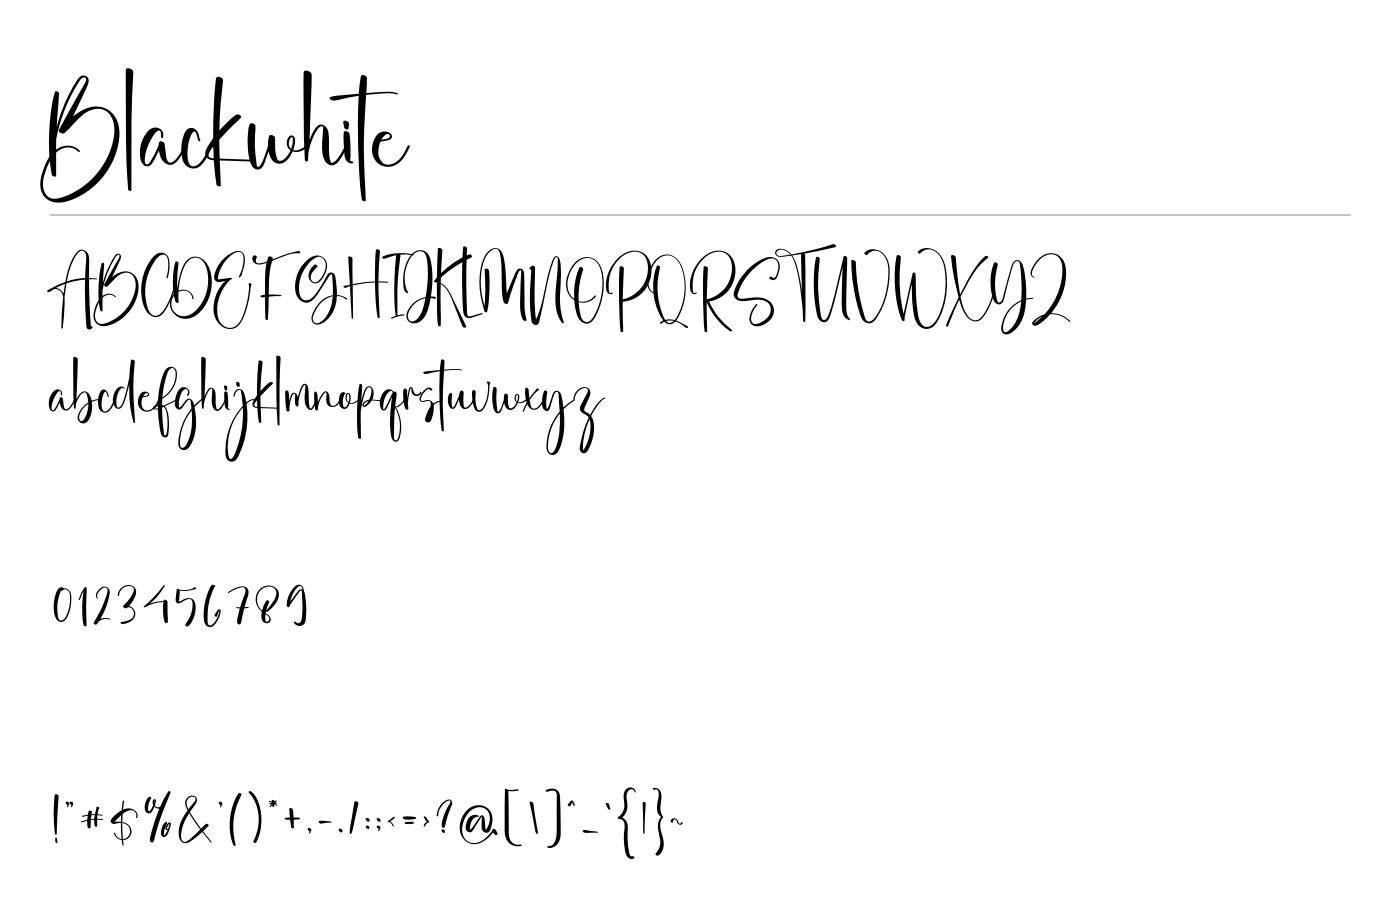 Blackwhite
ABCDEFGHIJKLMNOPQRSTUVWXYZ
abcdefghijklmnopqrstuvwxyz
0123456789
!"#$%&'()*+,-./:;<=>?@[\]^_`{|}~